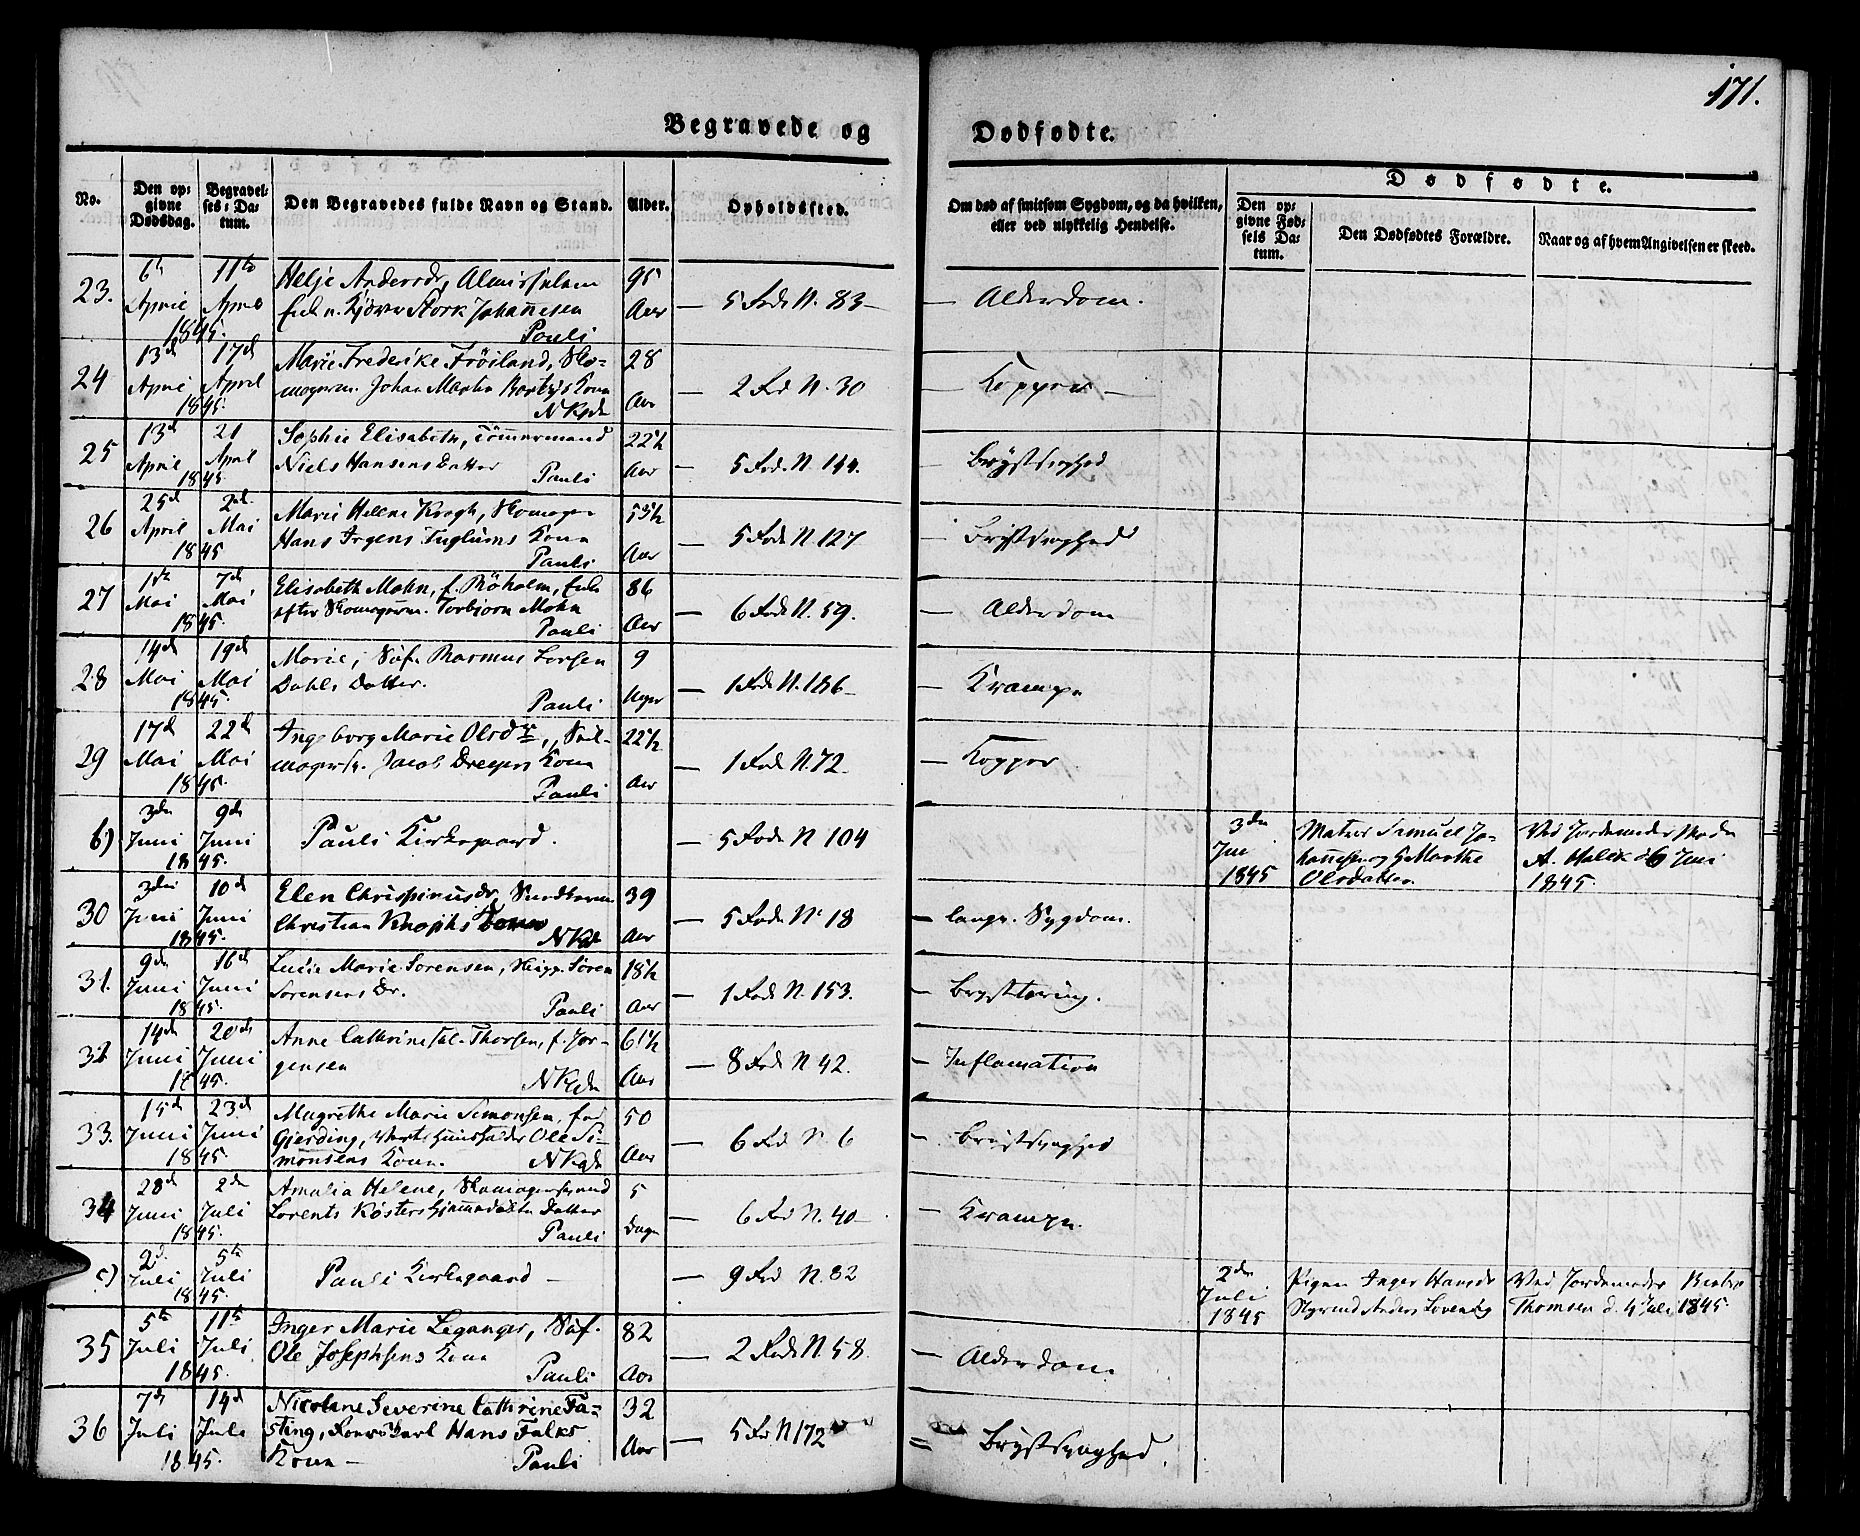 171.
Begravede og Dødfødte.
No.
Den opgivne Dødsdag.
Begravelses-Datum.
Den Begravedes fulde Navn og Stand.
Alder.
Opholdssted.
Om død af smitsom Sygdom, og da hvilken,
eller ved ulykkelig Hendelse.
Dødfødte.
Den opgivne Fødsels Datum.
Den Dødfødtes Forældre.
Naar og af hvem Angivelsen er skeed.
23. 6te April 11te April 1845.
Helje Andersdr, Almisselem
Enke n. Johannesen
Pauli
95 Aar
5 Rode N. 83
Alderdom.
24 13de April 17de April 1845.
Marie Frederike Frøiland, Sko-
magerm. Johan Kone
N Kgd
28 Aar
2 Rd N. 30
Kopper
25 13d April 21 April 1845.
Sophie Elisabeth, Tømmermand
Niels Hansens Datter
Pauli
22½ Aar
5 Rode N. 144.
Brystsyghed
26 25d April 2den Mai 1845
Marie Helene Krogh, Skomager
Hans Irgens Fuglums Kone
Pauli
53½ Aar
5 Rode N 127
Brystsyghed
27 1ste Mai 7de Mai 1845.
Elisabeth Mohn, f. Røholm, Enke
efter Skomagerm. Torbjørn Mohn
Pauli
86 Aar
6 Rode N. 59.
Alderdom
28 14de Mai 19de Mai 1845.
Marie, Søf. Rasmus Larsen
Dahls Datter.
Pauli
9 Uger
1 Rode N. 186
Krampe
29 17d Mai 22de Mai 1845.
Ingeborg Marie Olsdr, Seil-
magersv. Jacob Dreyers Kone
Pauli
22½ Aar
1 Rode N. 72.
Kopper
b) 3den Juni 9de Juni 1845.
Pauli Kirkegaard.
5 Rode N 104
3den Juni 1845
Matros Samuel Jo-
hannesen og Marthe
Olsdatter.
Ved Jordemoder Mada
A. Holck d 6 Juni
1845.
30 3den Juni 10de Juni 1845.
Elen Chrispinusdr,
Christian Knophs Kone
N Kgd
39 Aar
5 Rode N. 18
langv. Sygdom.
31. 9de Juni 16de Juni 1845.
Lucie Marie Sorensen, Skipp. Sören
Sorensens Dr.
Pauli
18½ Aar
1 Rode N. 153.
Brysttæring.
32 14de Juni 20de Juni 1845.
Anne Cathrine Sal. Thorsen, f. Jor-
gensen
N Kgd
61½ Aar
8 Rode N 42.
Inflamation
33. 15de Juni 23de Juni 1845.
Magrethe Marie Simonsen, fød
Gjerding, Vertshuusholder Ole Si-
monsens Kone.
N Kgd
50 Aar
6 Rd N. 6
Brystsyghed
34 28de Juni 2den Juli 1845.
Amalia Helene, Skomagersvend
Lorents Kösters Datter
Pauli
5 Dage
6 Rd N. 40
Krampe.
c) 2d. Juli 5te Juli 1845.
Pauli Kirkegaard
9 Rd N. 82
2den Juli 1845
Pigen Inger Hansdr
Styrmd Anders
Ved Jordemoder
Thomsen d. 4 Juli 1845.
35 5te Juli 11te Juli 1845.
Inger Marie Leganger, Søf.
Ole Josephsens Kone
Pauli
82 Aar
2 Rode N. 58.
Alderdom
36 7de Juli 14de Juli 1845.
Nicoline Severine Cathrine Fa-
sting, Hans Falks
Kone
Pauli
32 Aar
5 Rd N 172
Brystsyghed.